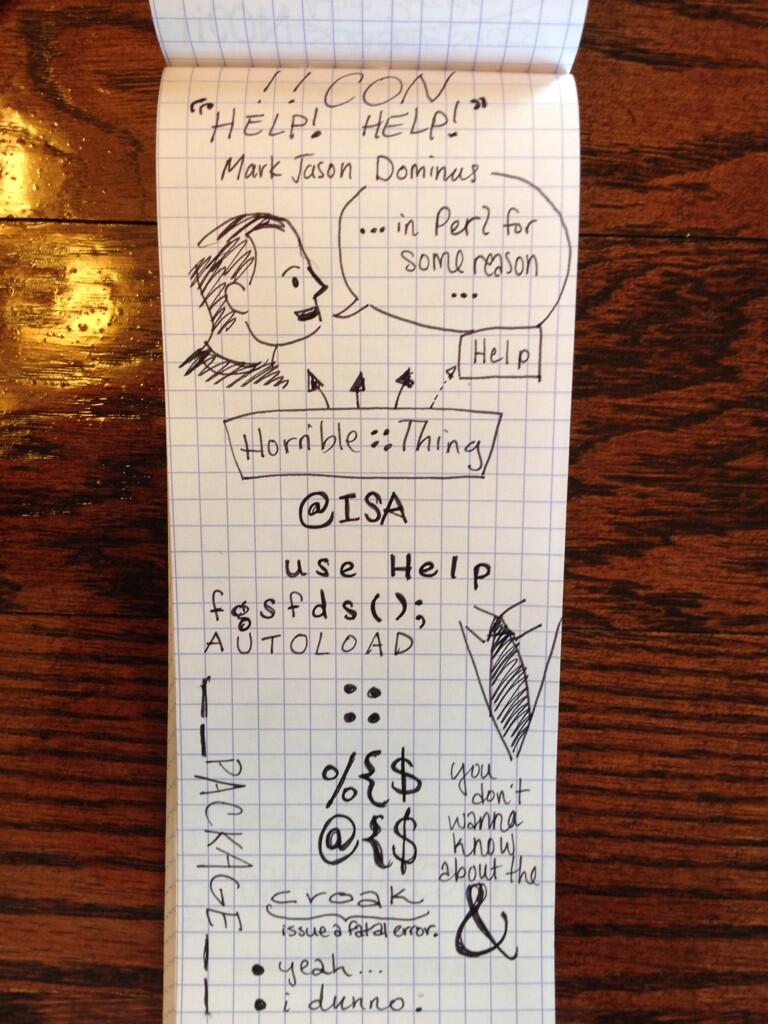 !! CON
"HELP! HELP!"
Mark Jason Dominus
... in Perl for
some reason
...
Help
Horrible::Thing
@ISA
use Help
fgsfds();
AUTOLOAD
::
__PACKAGE__
%{$
@{$
you
don't
wanna
know
about the
&
croak
issue a fatal error.
• yeah...
• i dunno.